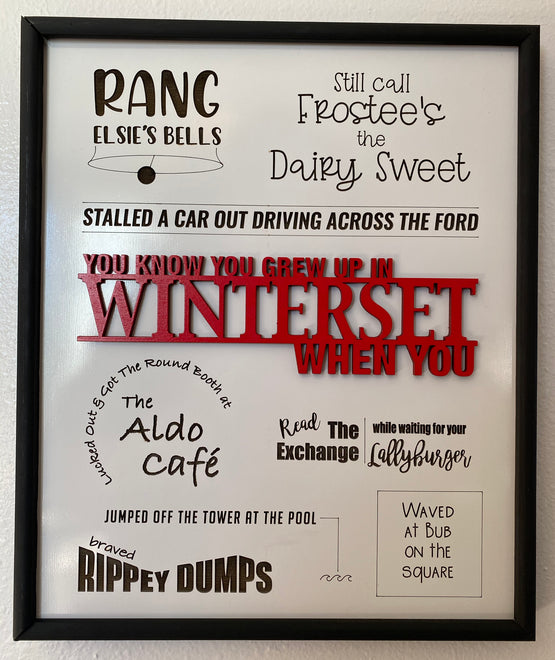 RANG
ELSIE'S BELLS
Still call
Frostee's
the
Dairy Sweet
STALLED A CAR OUT DRIVING ACROSS THE FORD
YOU KNOW YOU GREW UP IN
WINTERSET
WHEN YOU
Lucked Out & Got The Round Booth at
The
Aldo
Café
Read The
Exchange
while waiting for your
Lallyburger
JUMPED OFF THE TOWER AT THE POOL
braved
RIPPEY DUMPS
WAVED
AT BUB
ON THE
SQUARE